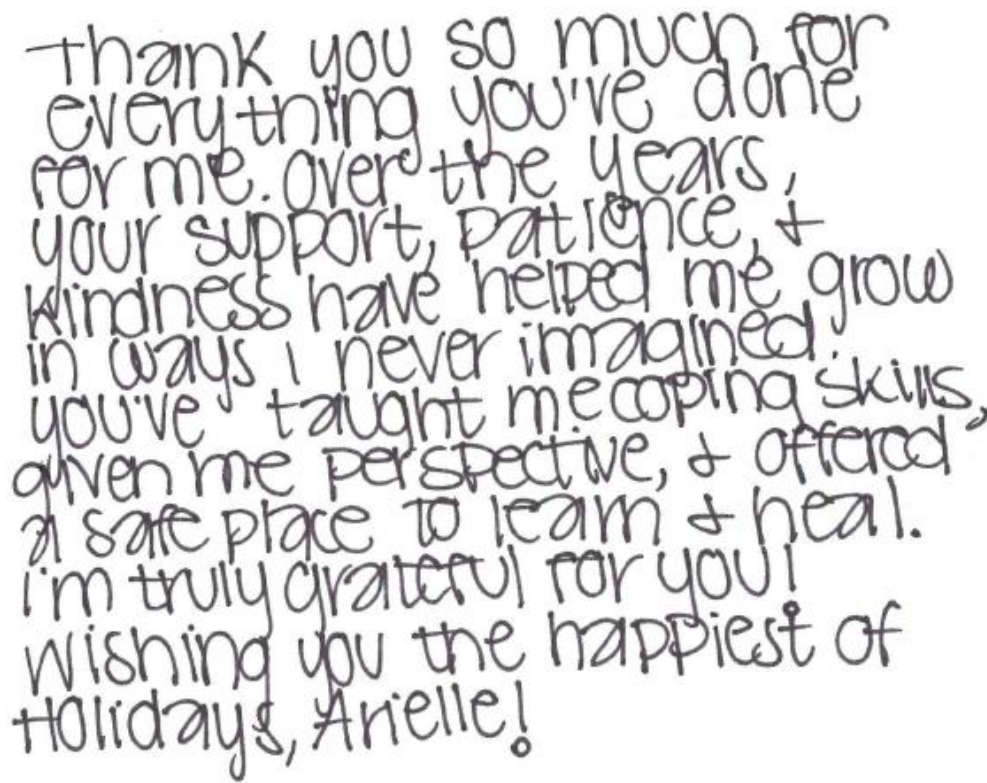 Thank you so much for
everything you've done
for me. Over the years,
your support, patience, &
kindness have helped me grow
in ways i never imagined.
you've taught me coping skills,
given me perspective, & offered
a safe place to learn & heal.
i'm truly grateful for you!
Wishing you the happiest of
Holidays, Arielle!